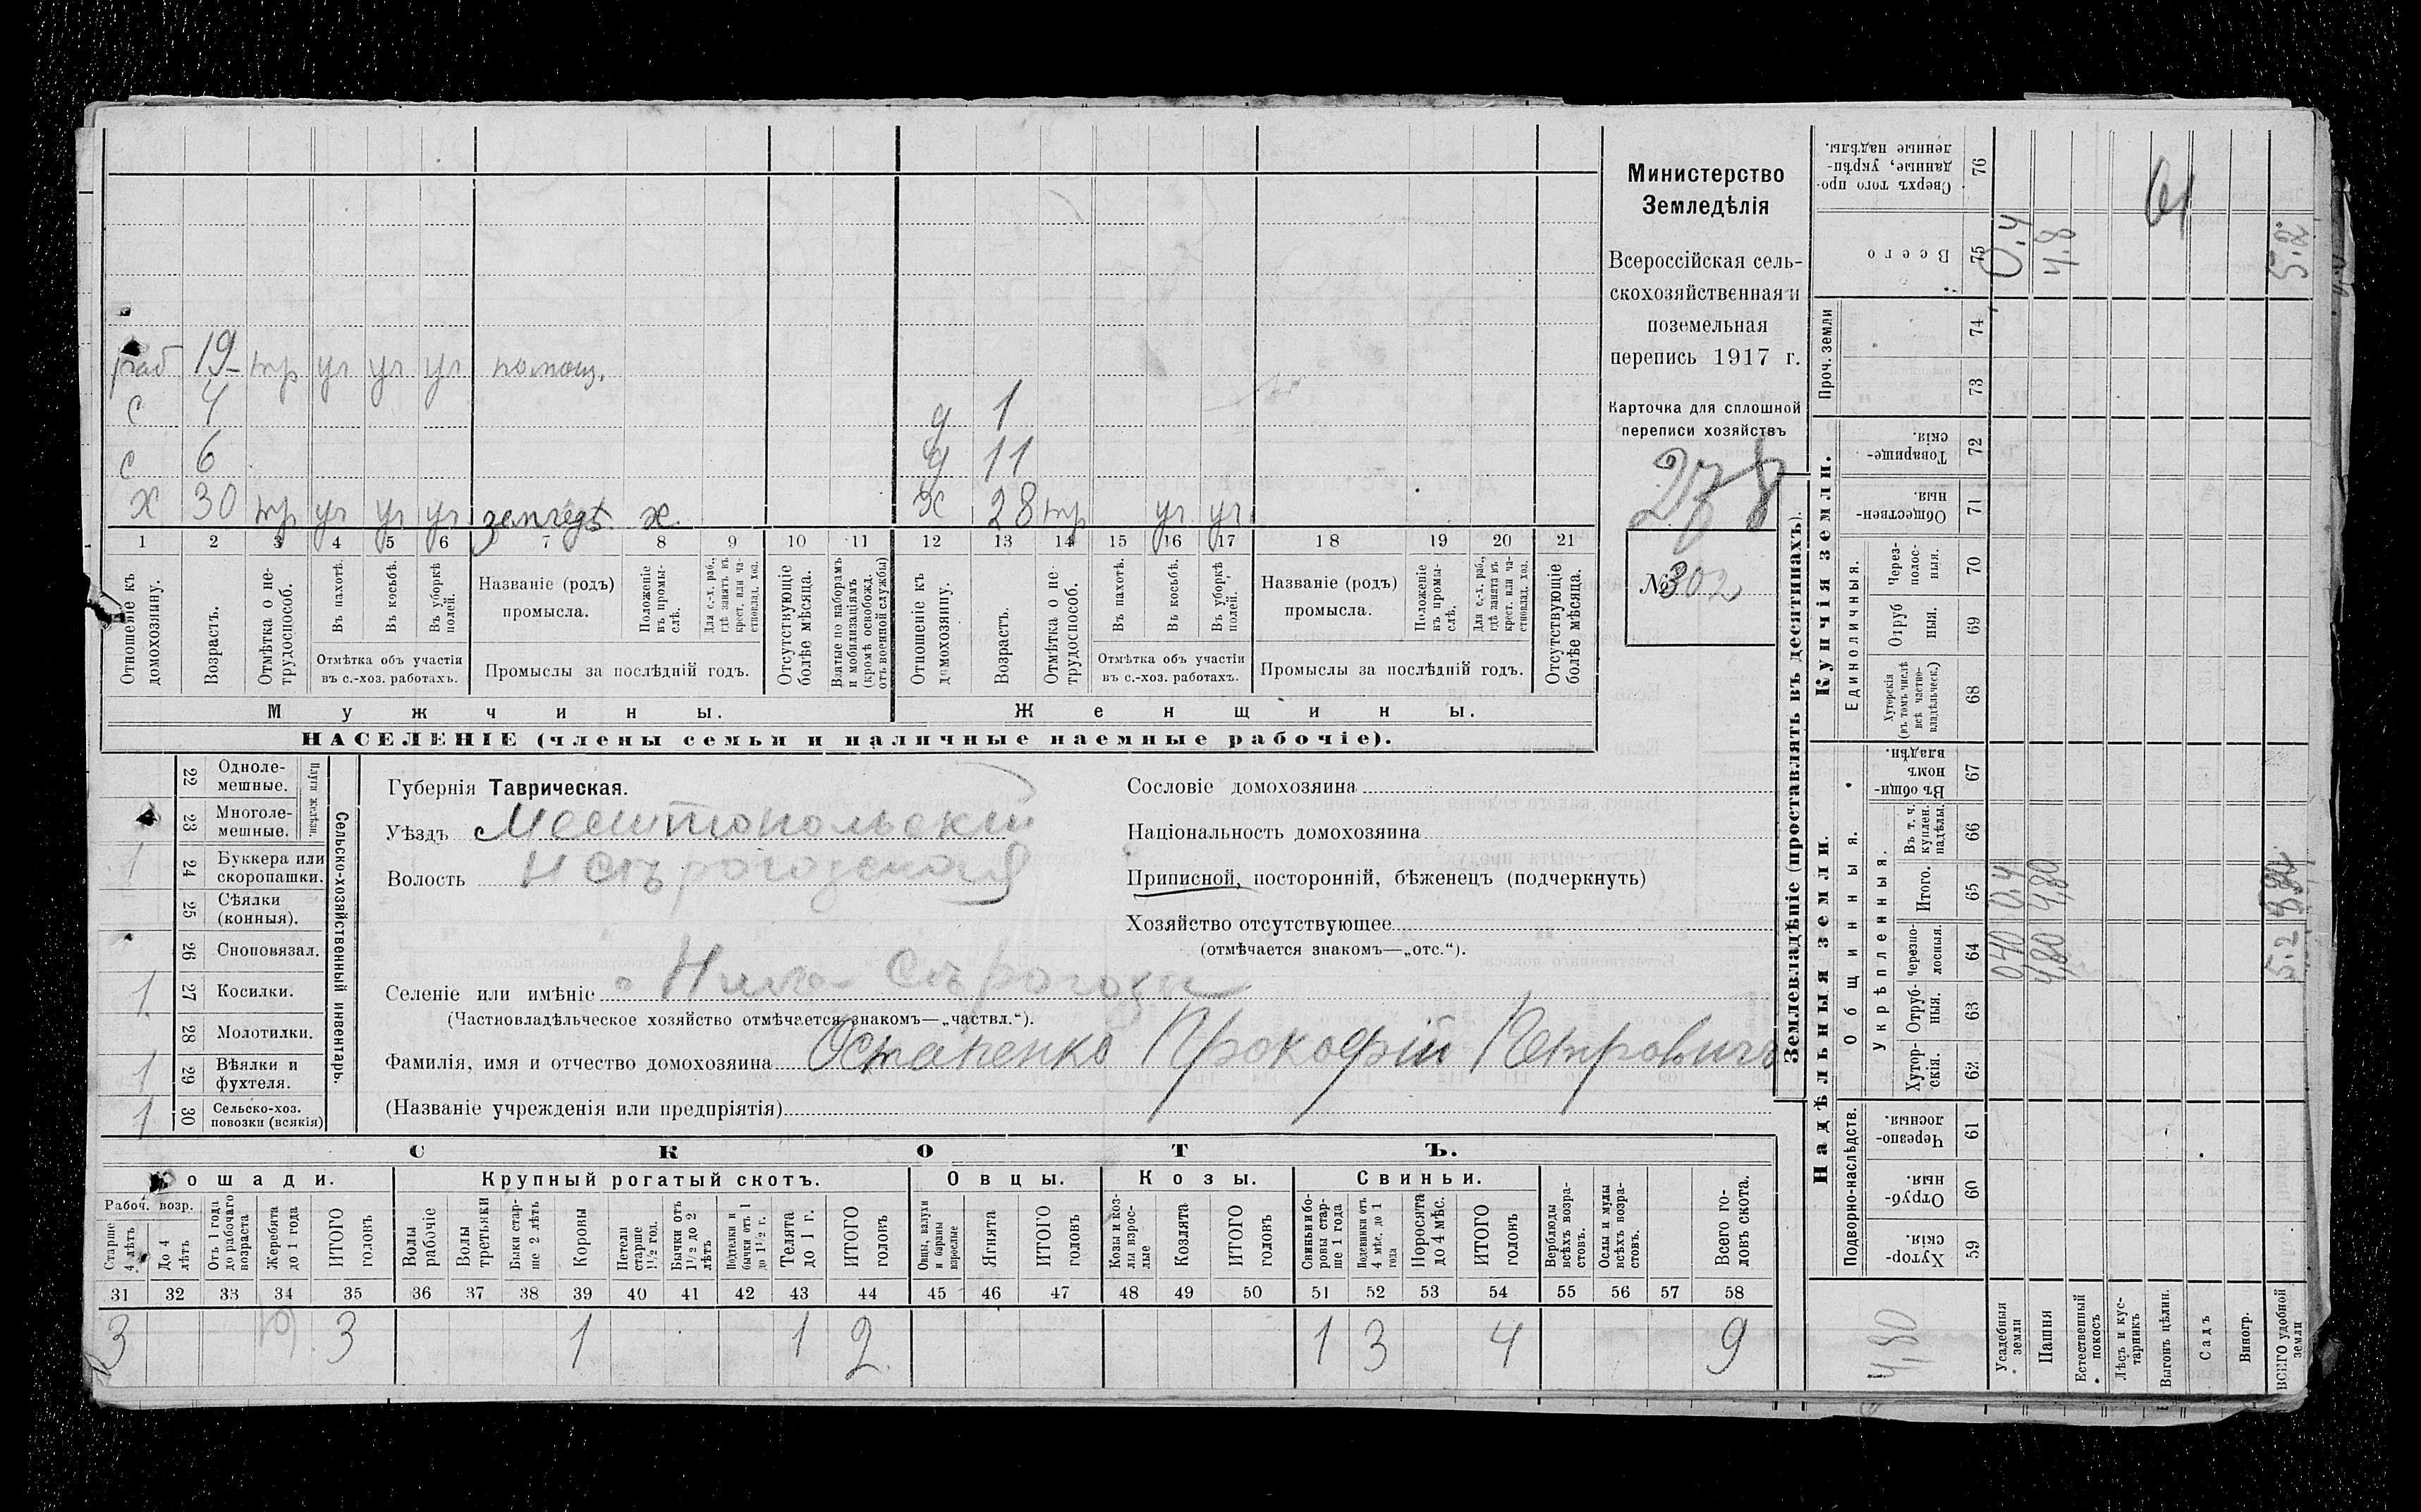 раб 19 тр уч уч уч помощ.
с 4 д 1
с 6 д 11
х 30 тр уч уч уч земледѣ х х 28 тр уч уч
1 2 3 4 5 6 7 8 9 10 11 12 13 14 15 16 17 18 19 20 21
Отношеніе къ домохозяину.
Возрастъ.
Отмѣтка о нетрудоспособ.
Въ пахотѣ.
Въ косьбѣ.
Въ уборкѣ полей.
Отмѣтка объ участіи
въ с.-хоз. работахъ.
Названіе (родъ)
промысла.
Положеніе въ промыслѣ.
Для с.-х. раб., гдѣ занятъ въ крест. или частновлад. хоз.
Промыслы за послѣдній годъ.
Отсутствующіе болѣе мѣсяца.
Взятые по наборамъ и мобилизаціямъ (кромѣ освобожд. отъ военной службы)
Отношеніе къ домохозяину.
Возрастъ.
Отмѣтка о нетрудоспособ.
Въ пахотѣ.
Въ косьбѣ.
Въ уборкѣ полей.
Отмѣтка объ участіи
въ с.-хоз. работахъ.
Названіе (родъ)
промысла.
Положеніе въ промыслѣ.
Для с.-х. раб., гдѣ занята въ крест. или частновлад. хоз.
Промыслы за послѣдній годъ.
Отсутствующіе болѣе мѣсяца.
Мужчины.
Женщины.
НАСЕЛЕНІЕ (члены семьи и наличные наемные рабочіе).
Министерство
Земледѣлія
Всероссійская сель-
скохозяйственная и
поземельная
перепись 1917 г.
Карточка для сплошной
переписи хозяйствъ
278
№ 302
22 Однолемешные.
23 Многолемешные.
Плуги желѣзн.
1 24 Буккера или скоропашки.
25 Сѣялки (конныя).
26 Сноповязал.
1 27 Косилки.
28 Молотилки.
1 29 Вѣялки и фухтеля.
1 30 Сельско-хоз. повозки (всякія)
Сельско-хозяйственный инвентарь.
Губернія Таврическая.
Уѣздъ Мелитопольскій
Волость Н Сѣрогозская
Селеніе или имѣніе Ниж- Сѣрогозы
(Частновладѣльческое хозяйство отмѣчается знакомъ—„частвл.“).
Фамилія, имя и отчество домохозяина Остапенко Прокофій Петровичъ
(Названіе учрежденія или предпріятія)
Сословіе домохозяина
Національность домохозяина
Приписной, посторонній, бѣженецъ (подчеркнуть)
Хозяйство отсутствующее
(отмѣчается знакомъ—„отс.“).
СКОТЪ.
Лошади. Крупный рогатый скотъ. Овцы. Козы. Свиньи.
Рабоч. возр.
Старше 4 лѣтъ
До 4 лѣтъ
Отъ 1 года до рабочаго возраста
Жеребята до 1 года
ИТОГО головъ
Волы рабочіе
Волы третьяки
Быки старше 2 лѣтъ
Коровы
Нетели старше 1½ год.
Бычки отъ 1½ до 2 лѣтъ
Подтелки и бычки отъ 1 до 1½ г.
Телята до 1 г.
ИТОГО головъ
Овцы, валухи и бараны взрослые
Ягнята
ИТОГО головъ
Козы и козлы взрослые
Козлята
ИТОГО головъ
Свиньи и боровы старше 1 года
Подсвинки отъ 4 мѣс. до 1 года
Поросята до 4 мѣс.
ИТОГО головъ
Верблюды всѣхъ возрастовъ.
Ослы и мулы всѣхъ возрастовъ.
Всего головъ скота.
31 32 33 34 35 36 37 38 39 40 41 42 43 44 45 46 47 48 49 50 51 52 53 54 55 56 57 58
3 3 1 1 2 1 3 4 9
Землевладѣніе (проставлять въ десятинахъ).
Надѣльныя земли.
Купчія земли.
Проч. земли
Подворно-наслѣдств.
Общинныя.
Укрѣпленныя.
Единоличныя.
Хуторскія. 59
Отрубныя. 60
Черезполосныя. 61
Хуторскія. 62
Отрубныя. 63
Черезполосныя. 64
Итого. 65
Въ т. ч. куплен. надѣлы. 66
Въ общинномъ владѣн. 67
Хуторскія (въ томъ числѣ всѣ частновладѣльческ.) 68
Отрубныя. 69
Черезполосныя. 70
Общественныя. 71
Товарищескія. 72
73
74
Всего 75
Сверхъ того проданные, укрѣпленные надѣлы. 76
4,80
Усадебныя земли 0,40 0,4 0.4
Пашня 4,80 4,80 4.8
Естественный покосъ
Лѣсъ и кустарникъ
Выгонъ цѣлин.
Садъ
Виногр.
ВСЕГО удобной земли 5.2 5.2
61